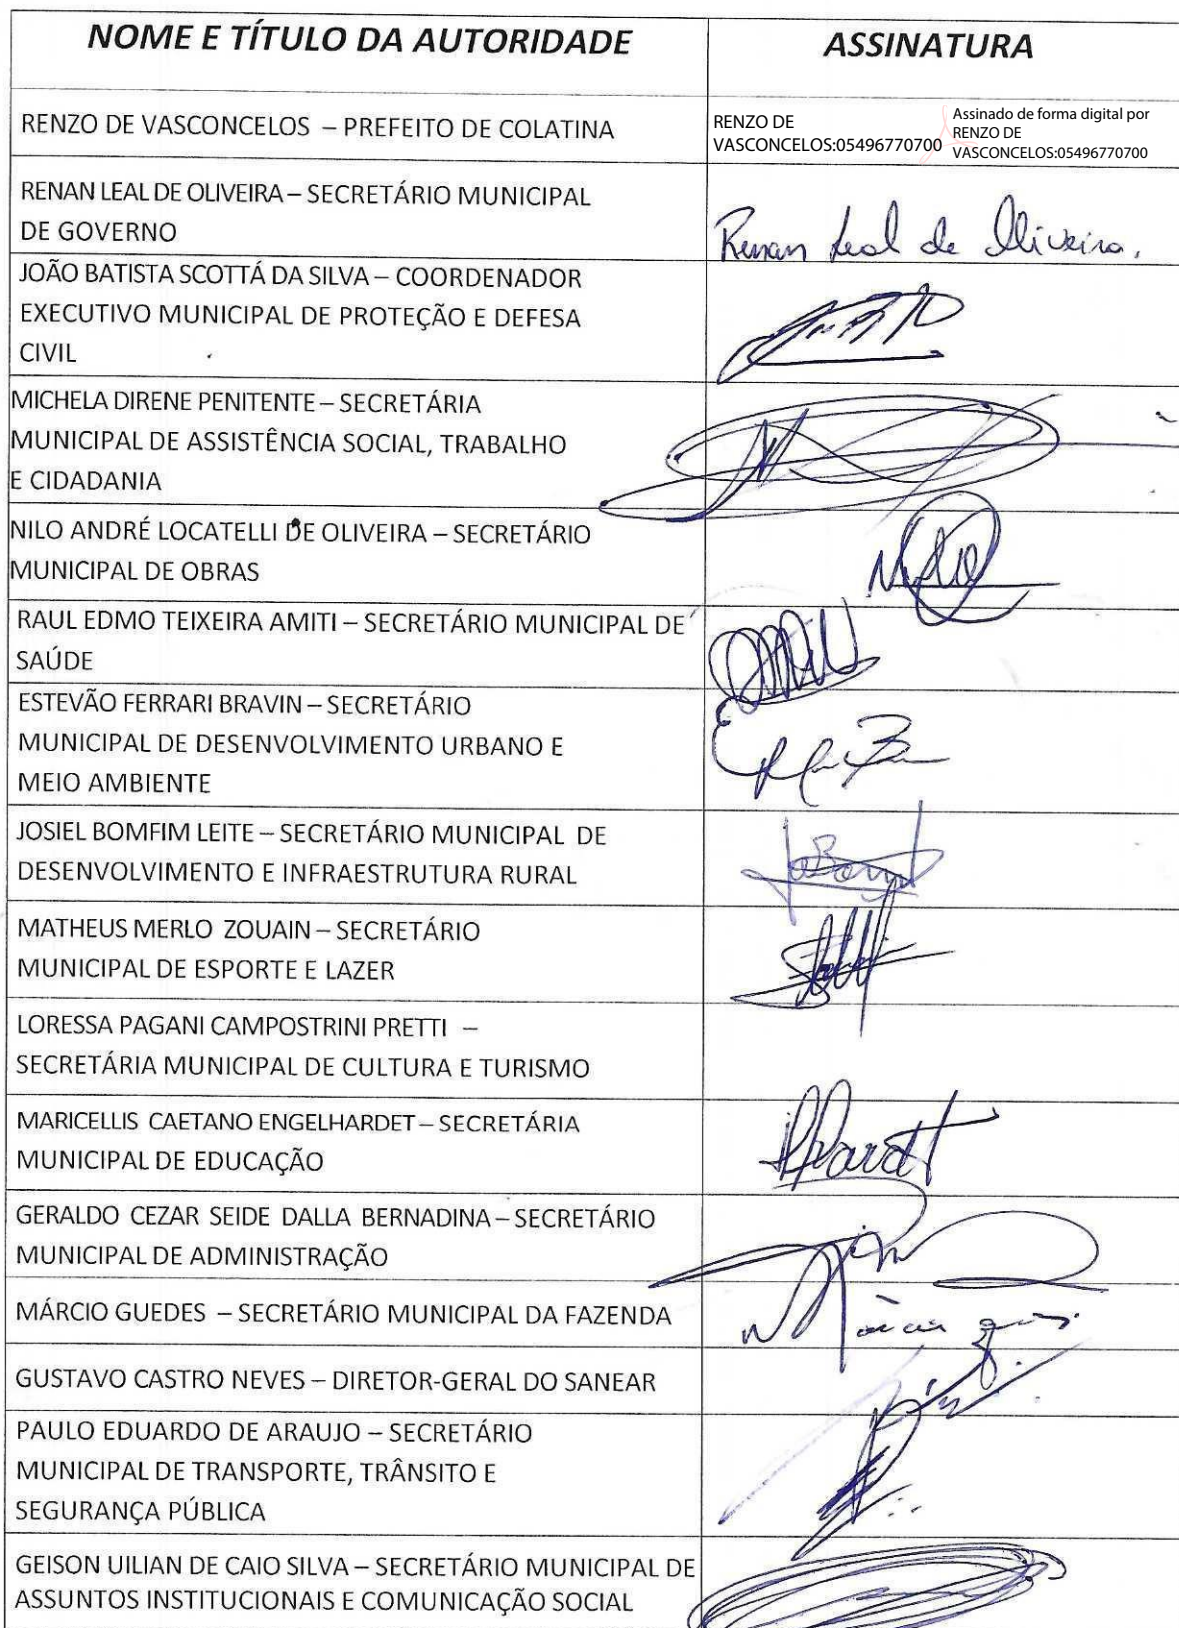 NOME E TÍTULO DA AUTORIDADE
ASSINATURA
RENZO DE VASCONCELOS – PREFEITO DE COLATINA
RENZO DE
VASCONCELOS:05496770700
Assinado de forma digital por
RENZO DE
VASCONCELOS:05496770700
RENAN LEAL DE OLIVEIRA – SECRETÁRIO MUNICIPAL
DE GOVERNO
Renan Leal de Oliveira.
JOÃO BATISTA SCOTTÁ DA SILVA – COORDENADOR
EXECUTIVO MUNICIPAL DE PROTEÇÃO E DEFESA
CIVIL
MICHELA DIRENE PENITENTE – SECRETÁRIA
MUNICIPAL DE ASSISTÊNCIA SOCIAL, TRABALHO
E CIDADANIA
NILO ANDRÉ LOCATELLI DE OLIVEIRA – SECRETÁRIO
MUNICIPAL DE OBRAS
RAUL EDMO TEIXEIRA AMITI – SECRETÁRIO MUNICIPAL DE
SAÚDE
ESTEVÃO FERRARI BRAVIN – SECRETÁRIO
MUNICIPAL DE DESENVOLVIMENTO URBANO E
MEIO AMBIENTE
JOSIEL BOMFIM LEITE – SECRETÁRIO MUNICIPAL DE
DESENVOLVIMENTO E INFRAESTRUTURA RURAL
MATHEUS MERLO ZOUAIN – SECRETÁRIO
MUNICIPAL DE ESPORTE E LAZER
LORESSA PAGANI CAMPOSTRINI PRETTI –
SECRETÁRIA MUNICIPAL DE CULTURA E TURISMO
MARICELLIS CAETANO ENGELHARDET – SECRETÁRIA
MUNICIPAL DE EDUCAÇÃO
GERALDO CEZAR SEIDE DALLA BERNADINA – SECRETÁRIO
MUNICIPAL DE ADMINISTRAÇÃO
MÁRCIO GUEDES – SECRETÁRIO MUNICIPAL DA FAZENDA
GUSTAVO CASTRO NEVES – DIRETOR-GERAL DO SANEAR
PAULO EDUARDO DE ARAUJO – SECRETÁRIO
MUNICIPAL DE TRANSPORTE, TRÂNSITO E
SEGURANÇA PÚBLICA
GEISON UILIAN DE CAIO SILVA – SECRETÁRIO MUNICIPAL DE
ASSUNTOS INSTITUCIONAIS E COMUNICAÇÃO SOCIAL